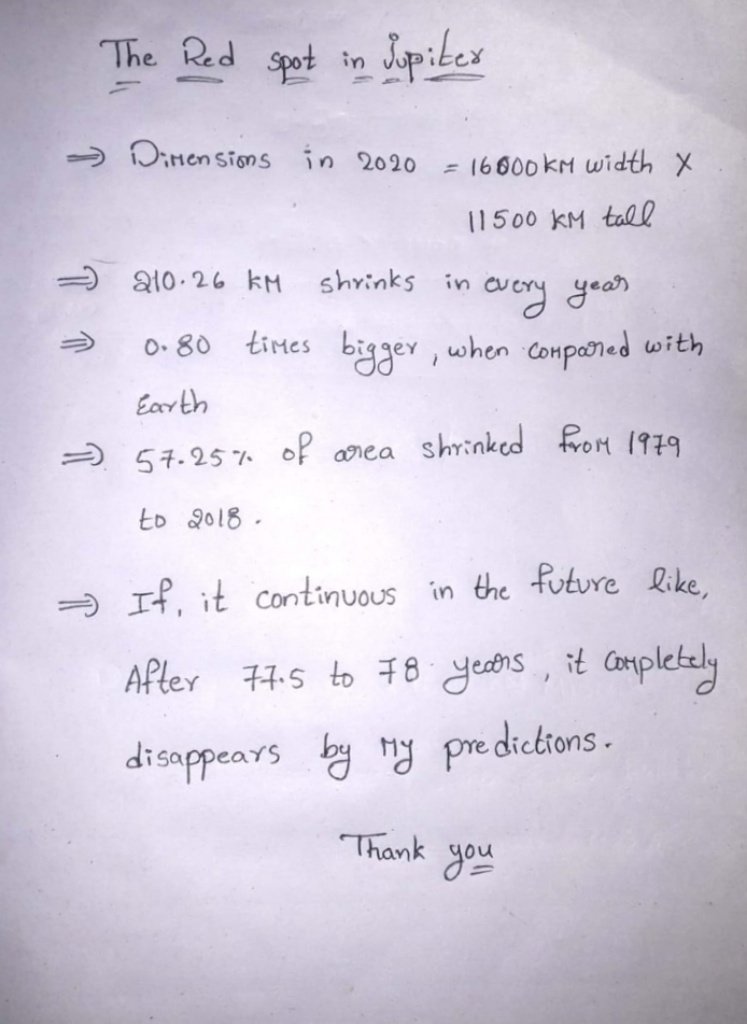 The Red spot in Jupiter
⇒ Dimensions in 2020 = 16000 KM width X
11500 KM tall
⇒ 210.26 KM shrinks in every year
⇒ 0.80 times bigger, when compared with
Earth
⇒ 57.25% of area shrinked from 1979
to 2018.
⇒ If, it continuous in the future like,
After 77.5 to 78 years, it completely
disappears by my predictions.
Thank you